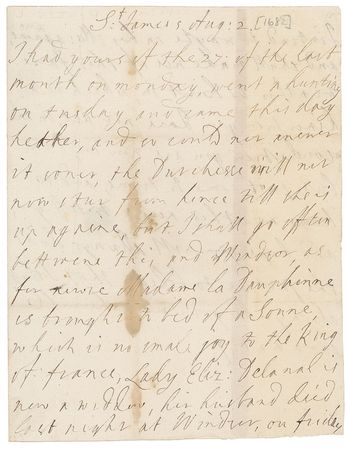 St James's Aug: 2. [1682]
I had yours of the 27: of the last
month on monday, went a hunting
on tusday, and came this day
hether, and so could not answer
it soner, the Dutchesse will not
now stur from hence till she is
up againe, but I shall go often
bettwene this, and Windsor, as
for newse Madame la Dauphinne
is brought to bed of a Sonne,
which is no smale joy to the King
of france, Lady Eliz: Delanal is
now a widdow, her husband died
last night at Windsor, on friday